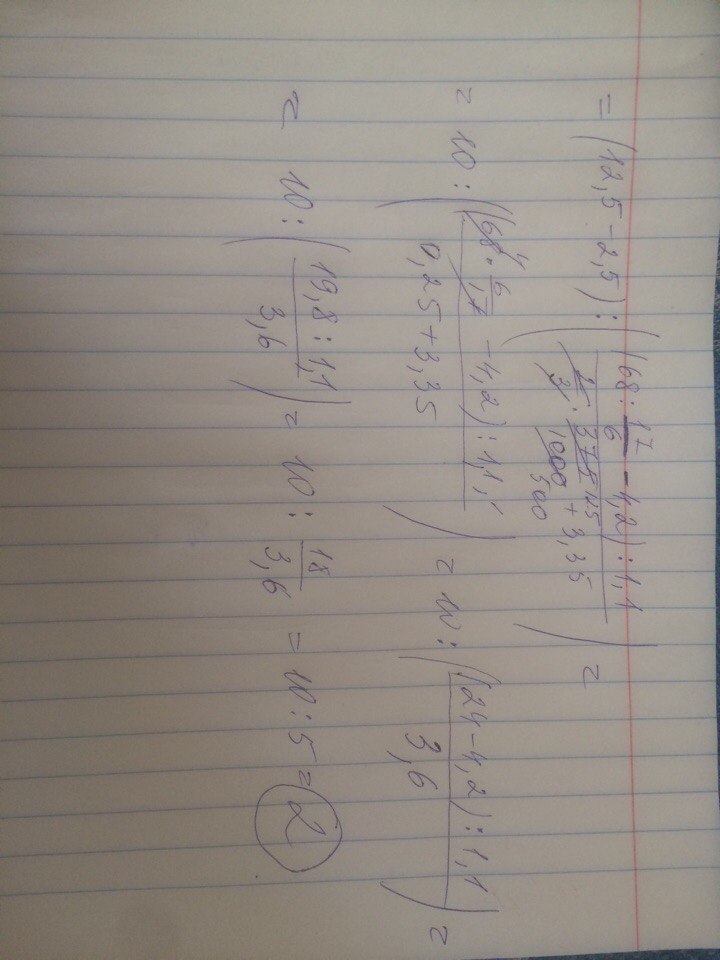 = (12,5 - 2,5) : ( (68 : 17/6 - 4,2) : 1,1 / (2/3 · 375/1000 + 3,35) ) =
125
500
= 10 : ( (68 · 6/17 - 4,2) : 1,1 / (0,25 + 3,35) ) = 10 : ( (24 - 4,2) : 1,1 / 3,6 ) =
4
= 10 : ( 19,8 : 1,1 / 3,6 ) = 10 : 18/3,6 = 10 : 5 = 2